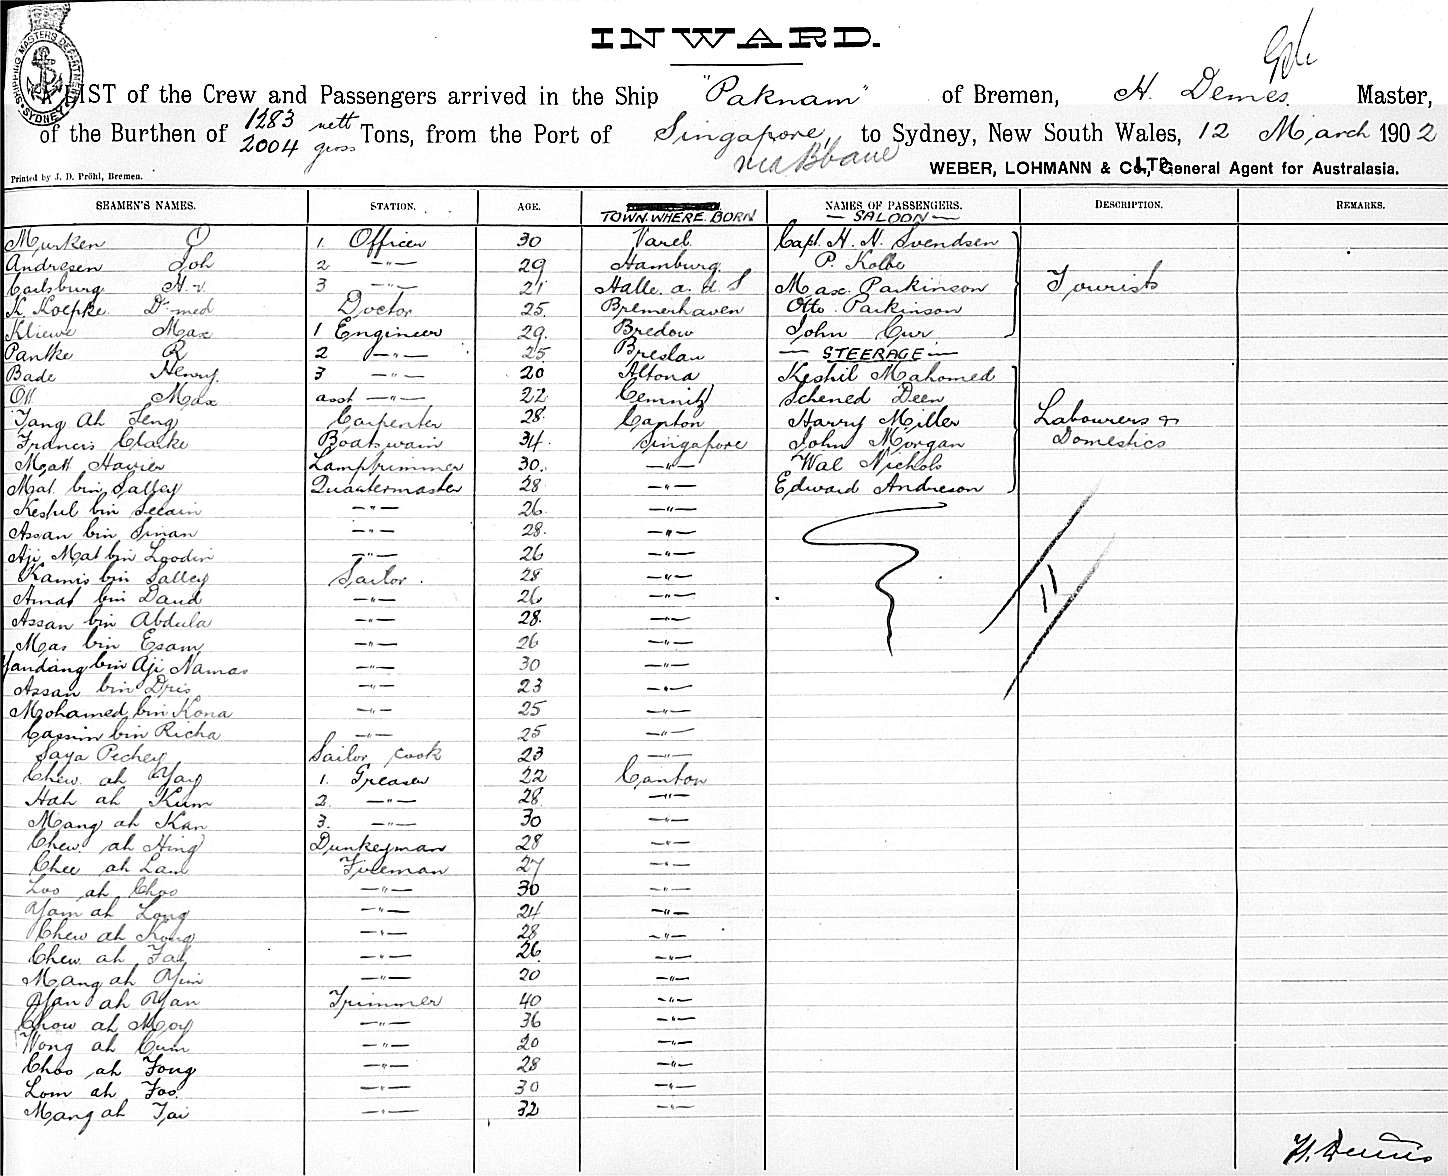 SHIPPING MASTERS DEPARTMENT SYDNEY
INWARD.
A LIST of the Crew and Passengers arrived in the Ship "Paknam" of Bremen, H. Demes. Master,
of the Burthen of 1283 nett 2004 gross Tons, from the Port of Singapore, via Bbane to Sydney, New South Wales, 12 March 1902
Printed by J. D. Pröhl, Bremen.
WEBER, LOHMANN & Co., LTD. General Agent for Australasia.
SEAMEN'S NAMES. STATION. AGE. TOWN WHERE BORN NAMES OF PASSENGERS. DESCRIPTION. REMARKS.
— SALOON —
Murken 1. Officer 30 Varel Capt. H. N. Svendsen
Andresen Joh 2 —"— 29 Hamburg. P. Kolbe
Carlsburg H. v. 3 —"— 21 Halle. a. d. S Max. Parkinson Tourists
K. Koepke Dr med Doctor 25. Bremerhaven Otto Parkinson
Kliewe Max 1 Engineer 29. Bredow John Cur.
Pantke R 2 —"— 25 Breslau — STEERAGE —
Bade Henry. 3 —"— 20 Altona Keshil Mahomed
Ott Max asst —"— 22 Cemnitz Schened Deen
Tang Ah Seng Carpenter 28 Canton Harry Miller Labourers &
Francis Clarke Boatswain 34. Singapore John Morgan Domestics
Matt Havier Lamptrimmer 30. —"— Wal Nichols
Mat bin Salley Quartermaster 28 —"— Edward Andreson
Keshil bin Selain —"— 26 —"—
Assan bin Sinan —"— 28. —"—
Aji Mat bin Loodin —"— 26 —"—
Kamis bin Salley Sailor. 28 —"—
Amat bin Daud —"— 26 —"— 11
Assan bin Abdula —"— 28. —"—
Mas bin Esam —"— 26 —"—
Yandang bin Aji Namas —"— 30 —"—
Assan bin Dris —"— 23 —"—
Mohamed bin Kona —"— 25 —"—
Cassim bin Richa —"— 25 —"—
Saya Pechey Sailor cook 23 —"—
Chew ah Yay 1. Greaser 22 Canton
Hah ah Kum 2. —"— 28 —"—
Mang ah Kan 3. —"— 30 —"—
Chew ah Hing Dunkeyman 28 —"—
Chee ah Lam Fireman 27 —"—
Loo ah Choo —"— 30 —"—
Yam ah Long —"— 24 —"—
Chew ah Kong —"— 28 —"—
Chew ah Fat —"— 26 —"—
Mang ah Yim —"— 20 —"—
Yan ah Yan Trimmer 40 —"—
Chow ah Moy —"— 36 —"—
Wong ah Cum —"— 20 —"—
Choo ah Fong —"— 28 —"—
Lom ah Foo. —"— 30 —"—
Mang ah Tai —"— 32 —"—
H. Demes